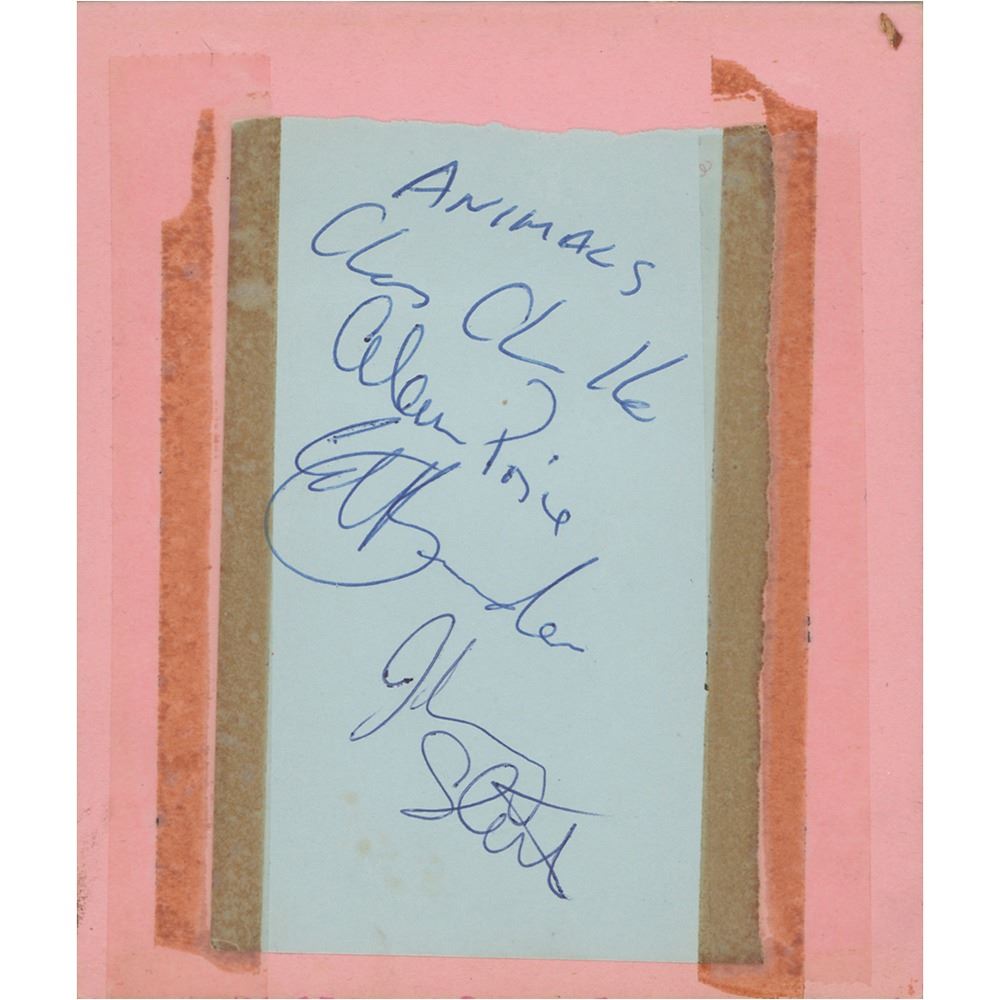 ANIMALS
Chas Chandler
Alan Price
Eric Burdon
John
Steel